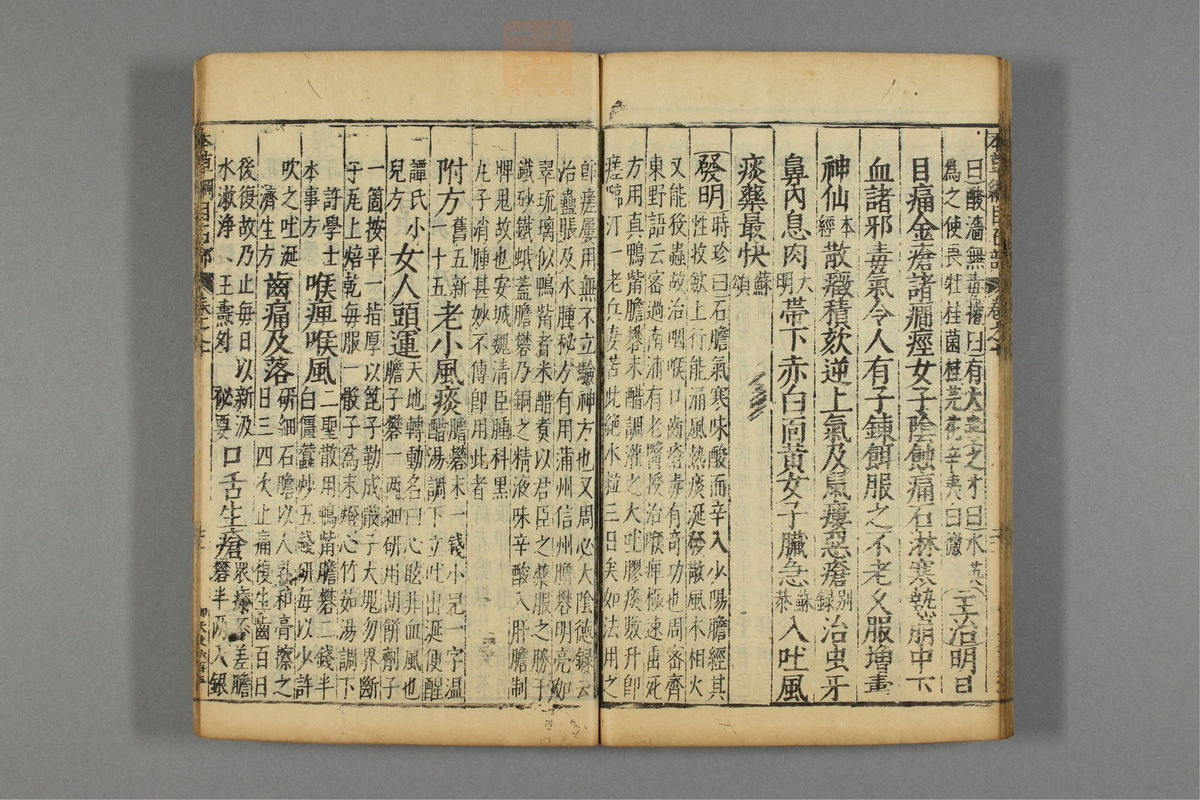 曰酸濇無毒權曰有大毒之才曰水英
為之使畏牡桂菌桂芫花辛夷白薇
主治明目
目痛金瘡諸癇痙女子陰蝕痛石淋寒熱崩中下
血諸邪毒氣令人有子鍊餌服之不老乆服增壽
神仙本經散癥積欬逆上氣及鼠瘻惡瘡別錄治虫牙
鼻內息肉大明帶下赤白面黃女子臟急蘇恭入吐風
痰藥最快蘇頌
發明
時珍曰石膽氣寒味酸而辛入少陽膽經其
性收斂上行能涌風熱痰涎發散風木相火
又能殺蟲故治咽喉口齒瘡毒有竒功也周密齊
東野語云密過南浦有老醫授治喉痺極速垂死
方用真鴨觜膽礬末醋調灌之大吐膠痰數升即
瘥臨汀一老兵妻苦此絕水粒三日矣如法用之
即瘥屢用無不立驗神方也又周必大陰德錄云
治蠱脹及水腫秘方有用蒲州信州膽礬明亮如
翠琉璃似鴨觜者米醋煮以君臣之藥服之勝于
鐵砂鐵蛾蓋膽礬乃銅之精液味辛酸入肝膽制
脾鬼故也安城魏清臣腫科黑
丸子消腫甚妙不傳即用此者
附方舊五新一十五老小風痰膽礬末一錢小兒一字溫
醋湯調下立吐出涎便醒
譚氏小兒方女人頭運天地轉動名曰心眩非血風也
膽子礬一兩細研用胡餅劑子
一箇按平一指厚以篦子勒成骰子大塊勿界斷
於瓦上焙乾每服一骰子為末燈心竹茹湯調下
許學士本事方喉痺喉風二聖散用鴨觜膽礬二錢半
白僵蠶炒五錢研每以少許
吹之吐涎濟生方齒痛及落研細石膽以人乳和膏擦之
日三四次止痛復生齒百日
後復故乃止每日以新汲
水漱淨王燾外秘要口舌生瘡衆療不差膽
礬半兩入銀
本草綱目石部